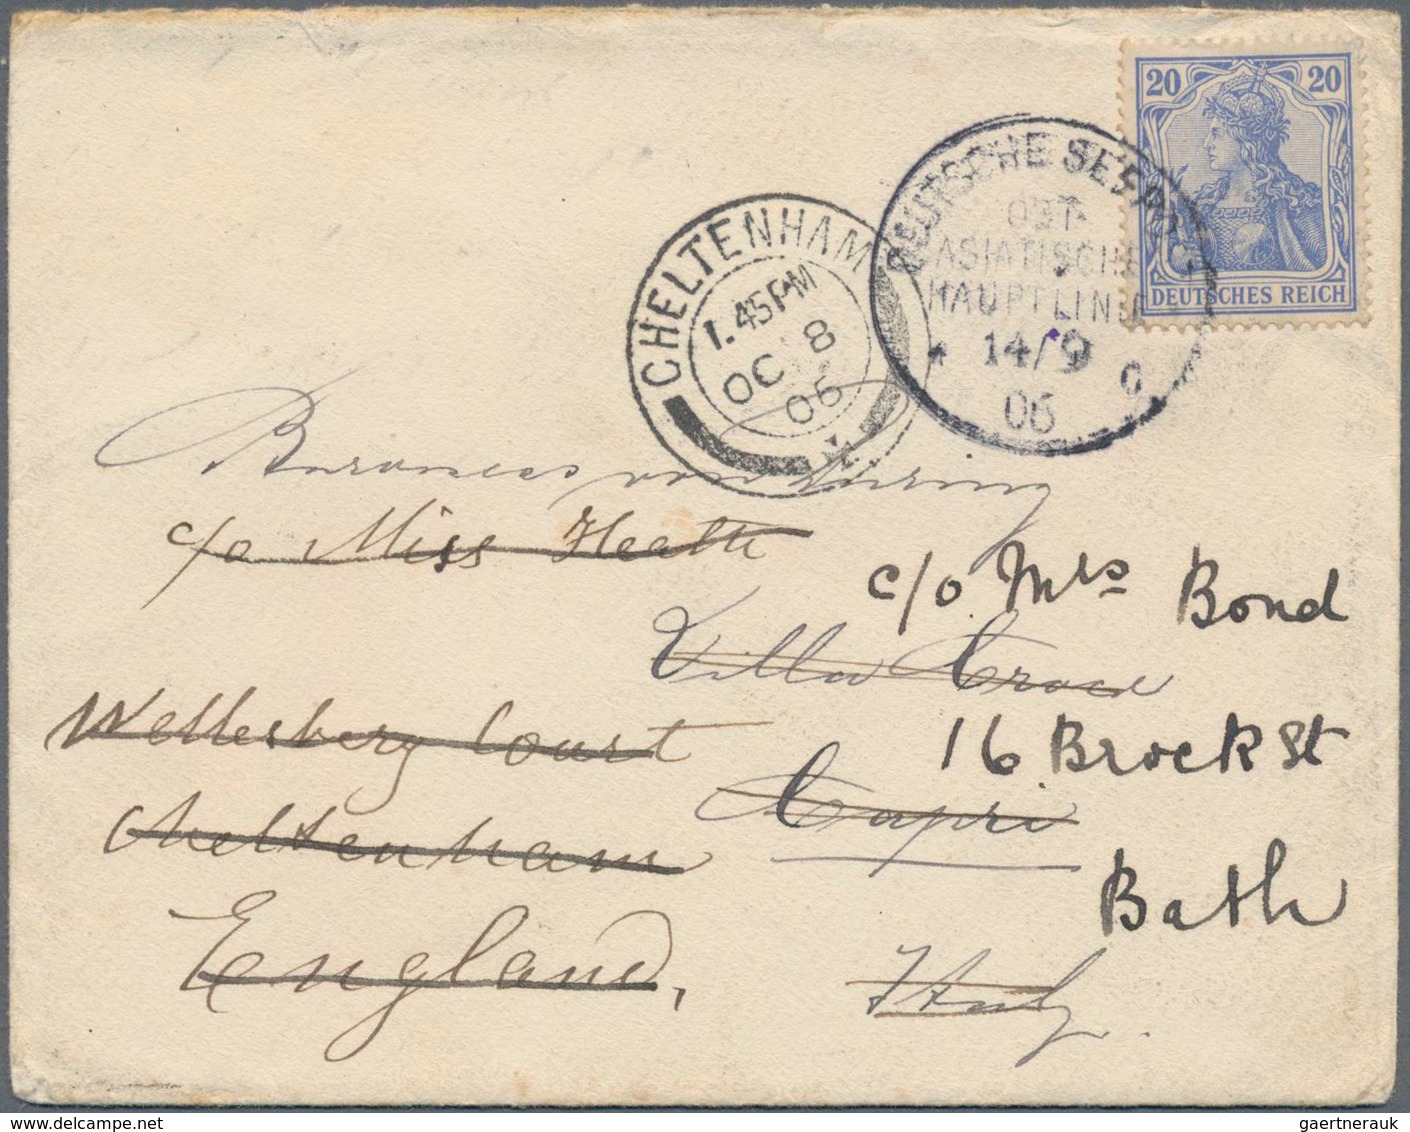 20 20
DEUTSCHES REICH
DEUTSCHE SEEPOST
OST-
ASIATISCHE
HAUPTLINIE
14/9
06
CHELTENHAM
1.45PM
OC 8
06
Baroness von
c/o Miss Heath
c/o Mrs Bond
Villa Croce
Wellesberg Court
16 Brock St
Capri
Cheltenham
Bath
England,
Italy.
gaertnerauk